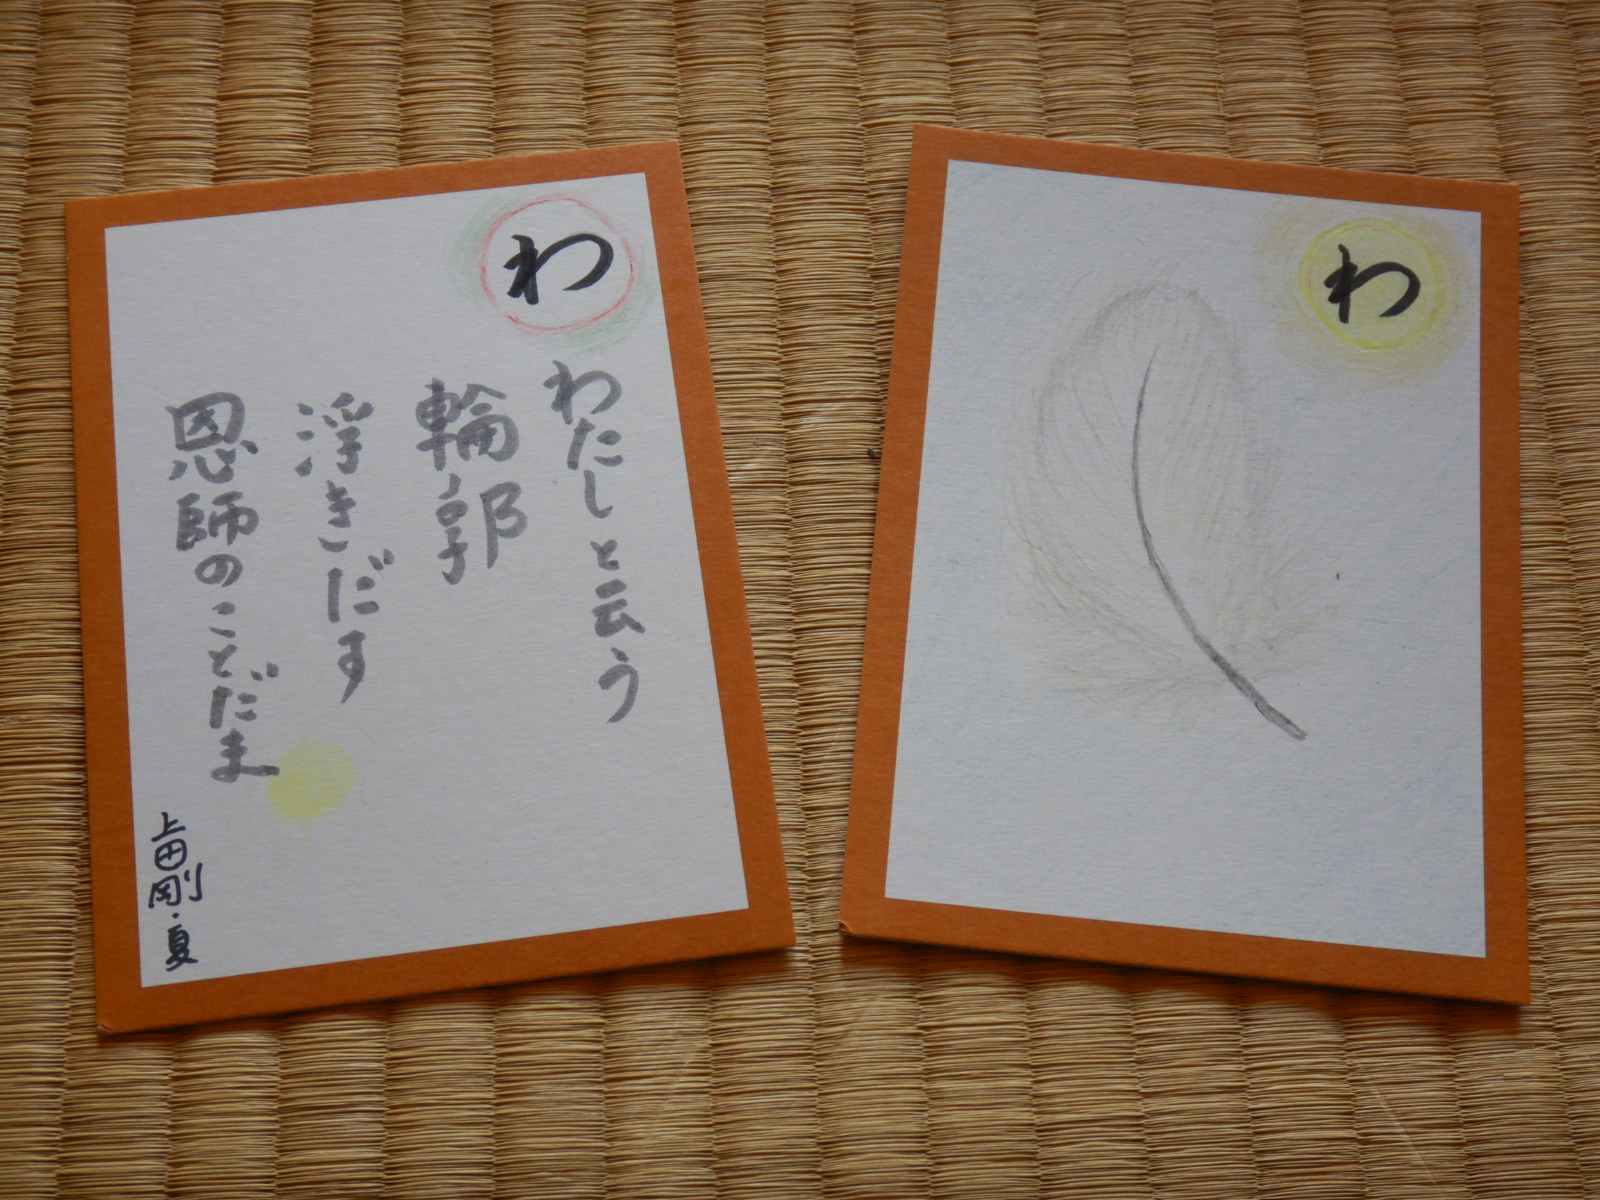 わ
わたしと云う
輪郭
浮きだす
恩師のことだま
上田剛・夏
わ